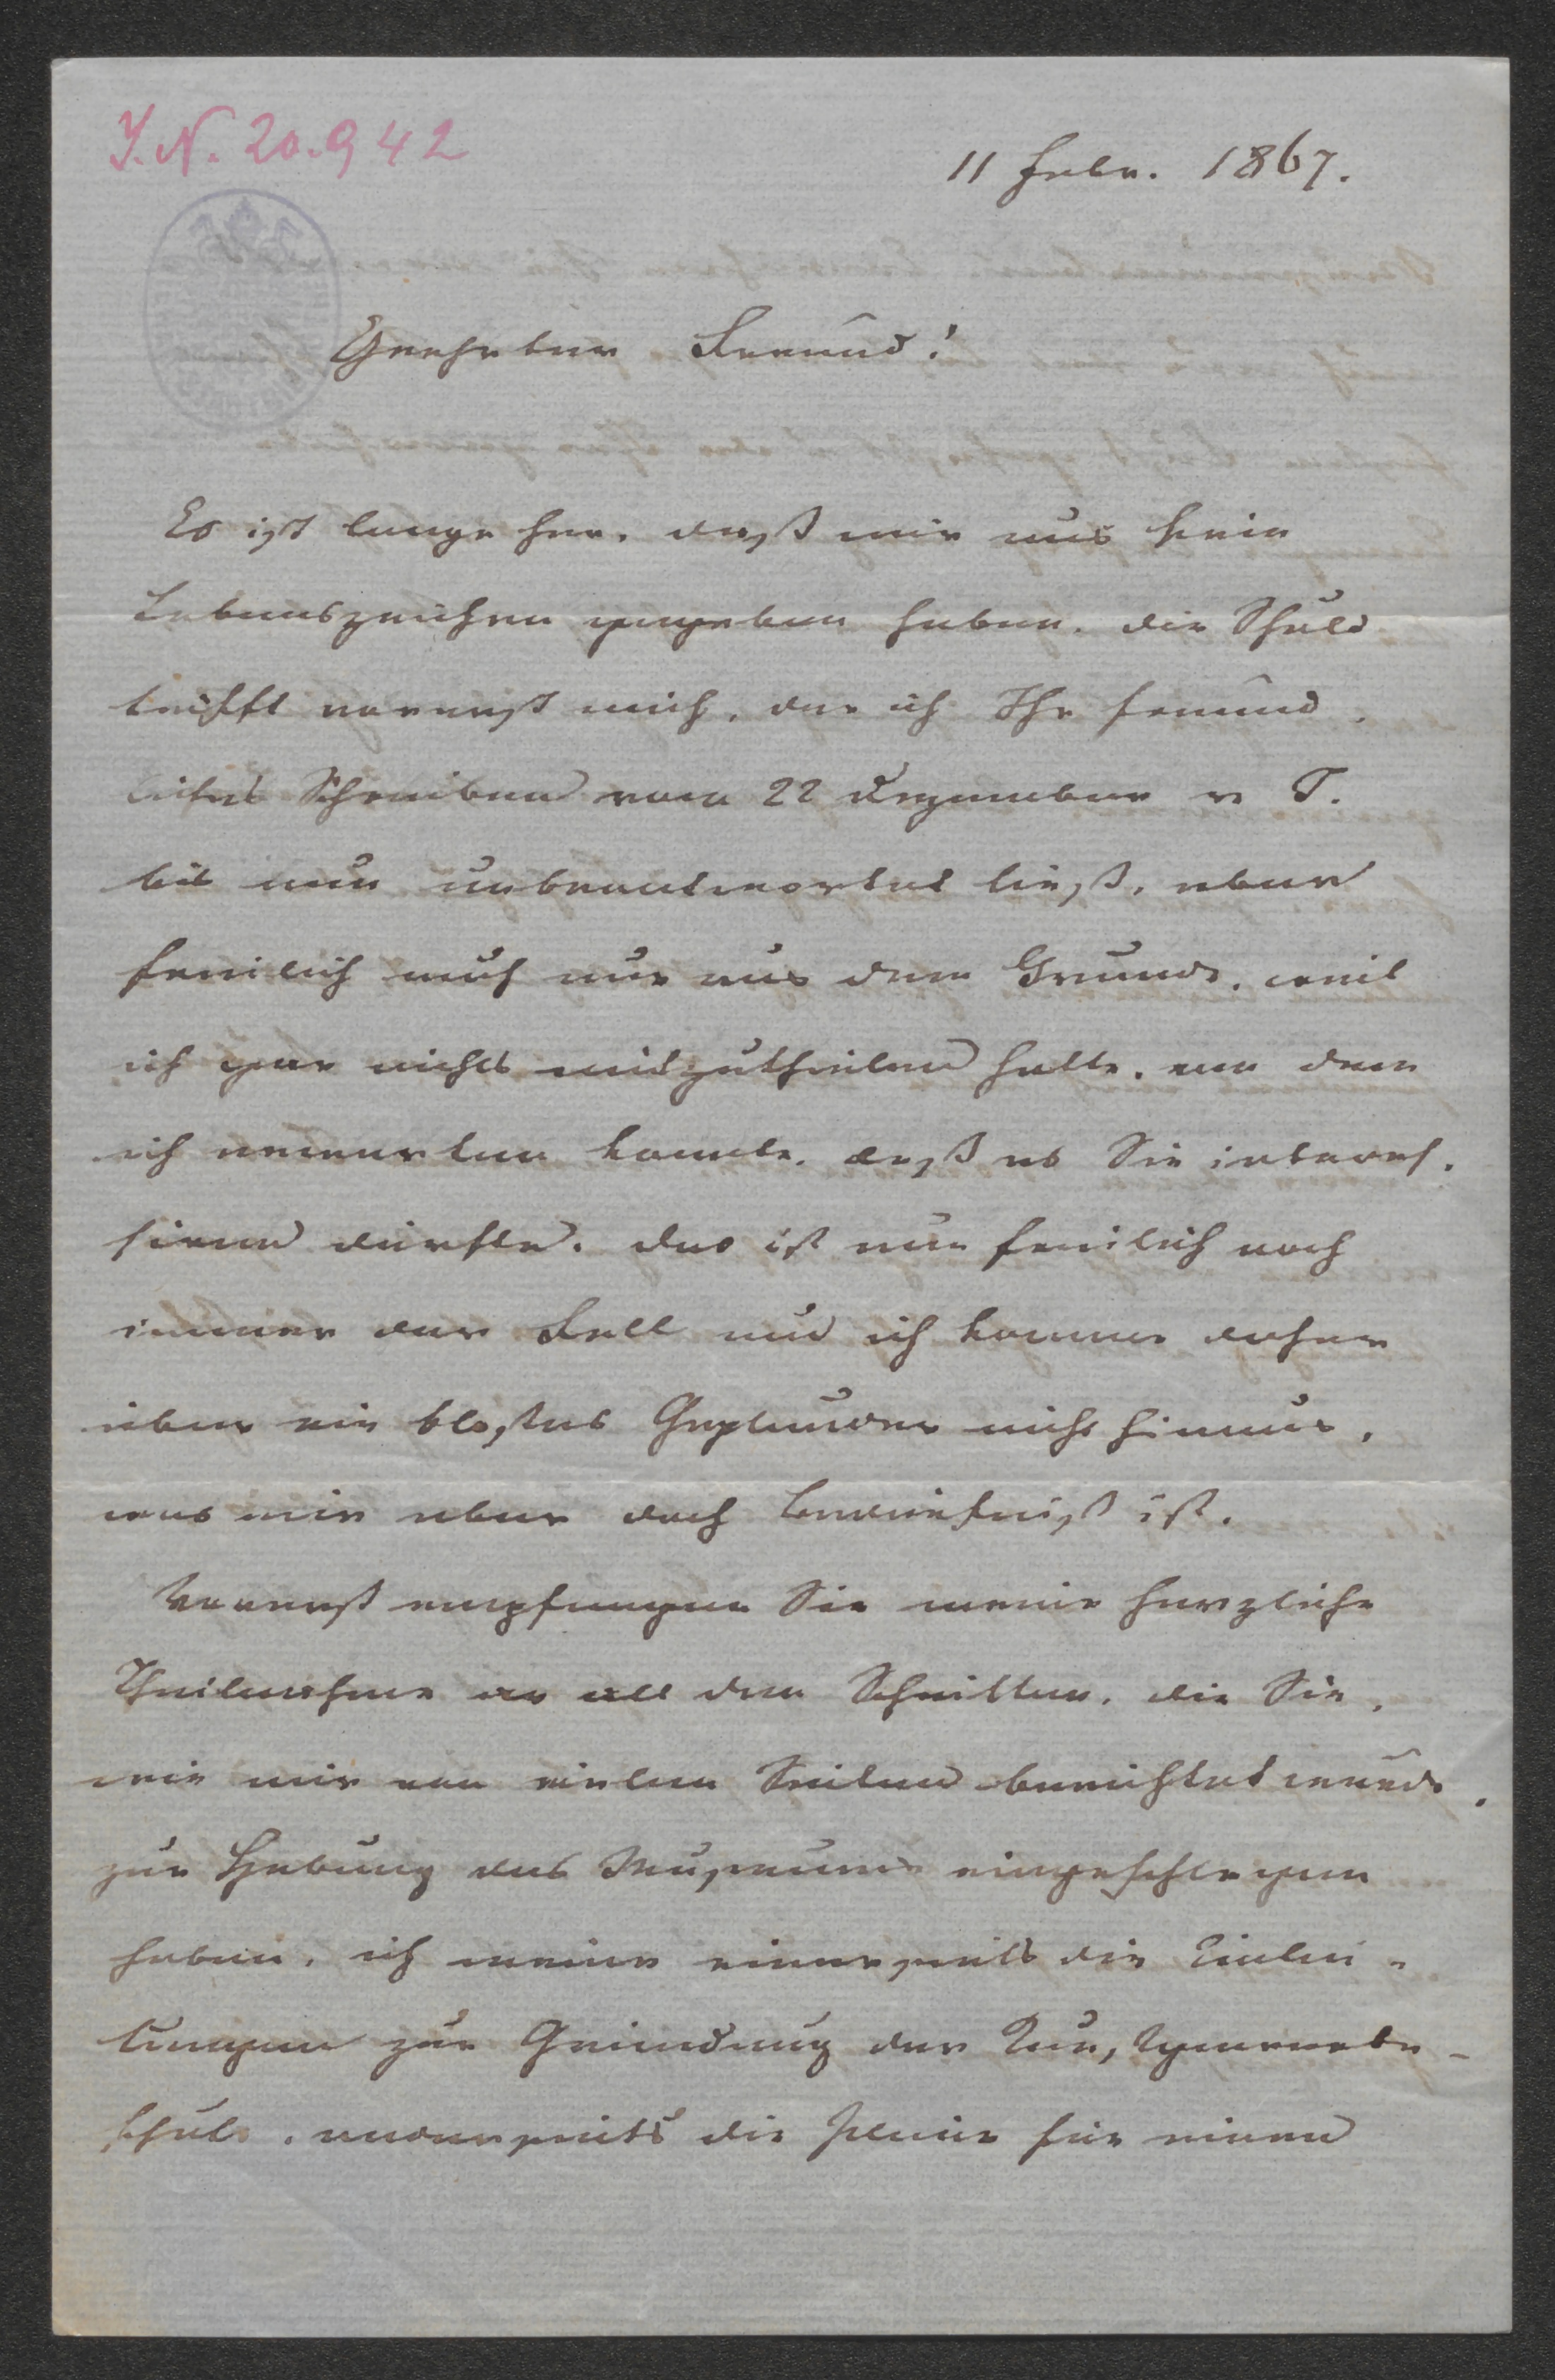 I.N. 20.942
11 Febr. 1867.
Geehrter Freund!
Es ist lange her, daß wir uns kein
Lebenszeichen gegeben haben. die Schuld
trifft vorerst mich, der ich Ihr freund.
liches Schreiben vom 22 Dezember v J.
bis nun unbeantwortet ließ, aber
freilich auch nur aus dem Grunde, weil
ich gar nichts mitzutheilen hatte, von dem
ich erwarten konnte, daß es Sie interes.
siren dürfte. das ist nun freilich noch
immer der Fall und ich komme daher
über ein bloßes Geplauder nicht hinaus,
was mir aber doch Bedürfniß ist.
Vorerst empfangen Sie meine herzliche
Theilnahme an all den Schritten, die Sie,
wie mir von vielen Seiten berichtet wurde,
zur Hebung des Museums eingeschlagen
haben, ich meine einerseits die Einlei-
tungen zur Gründung der Kunstgewerbe-
schule, anderseits die Pläne für einen